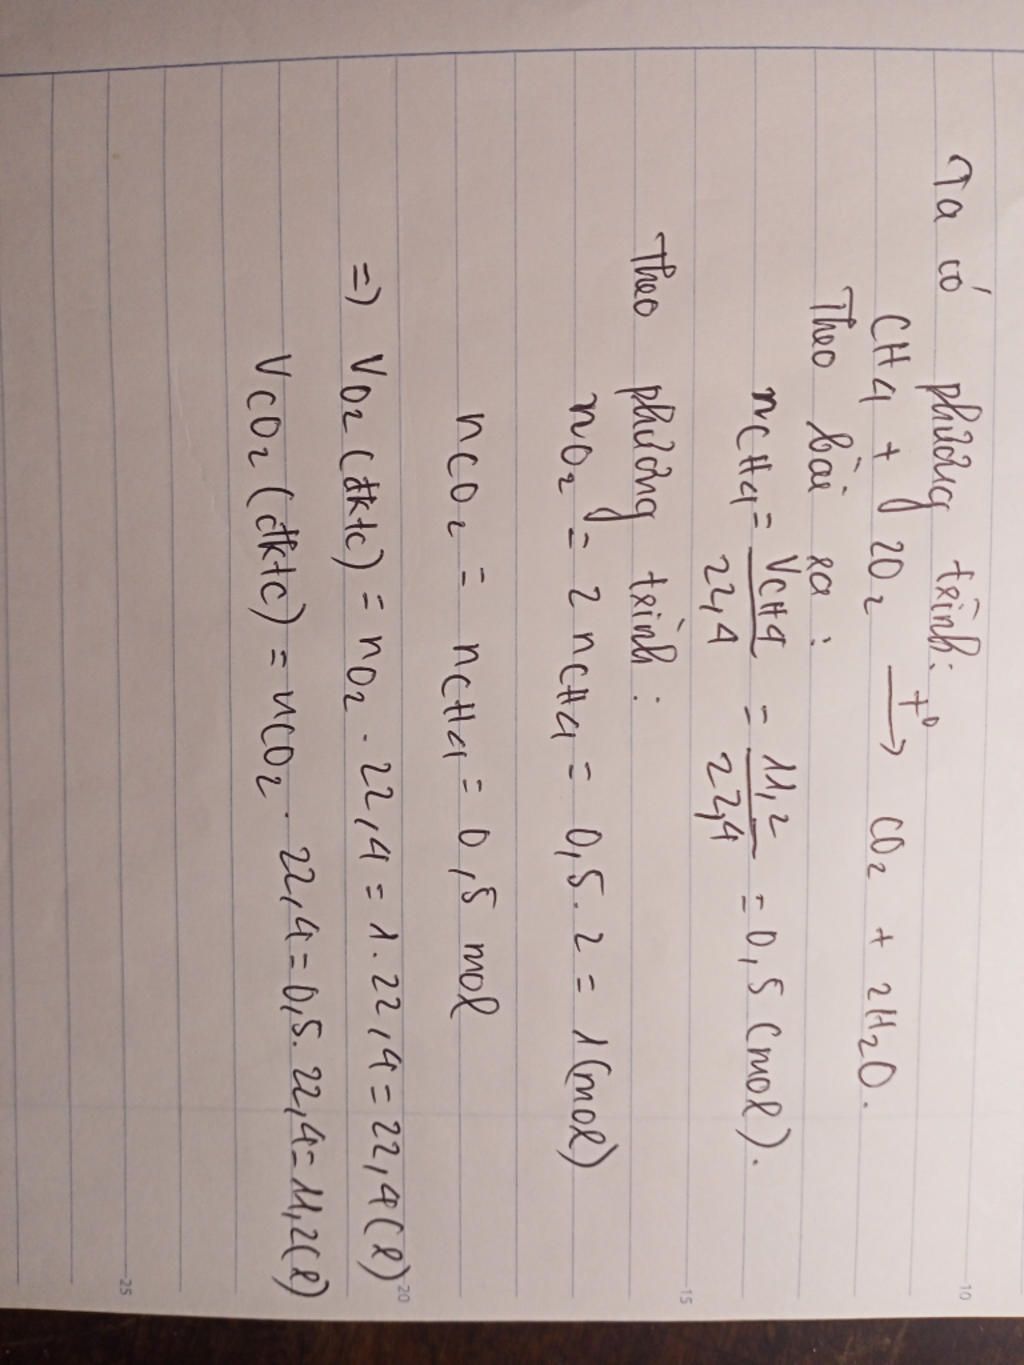 Ta có phương trình:
CH4 + 2O2 —t°→ CO2 + 2H2O.
Theo bài ra:
nCH4 = VCH4/22,4 = 11,2/22,4 = 0,5 (mol).
Theo phương trình:
nO2 = 2 nCH4 = 0,5. 2 = 1 (mol)
nCO2 = nCH4 = 0,5 mol
=) VO2 (đktc) = nO2 . 22,4 = 1. 22,4 = 22,4 (l)
VCO2 (đktc) = nCO2 . 22,4 = 0,5. 22,4 = 11,2 (l)
10
15
20
25